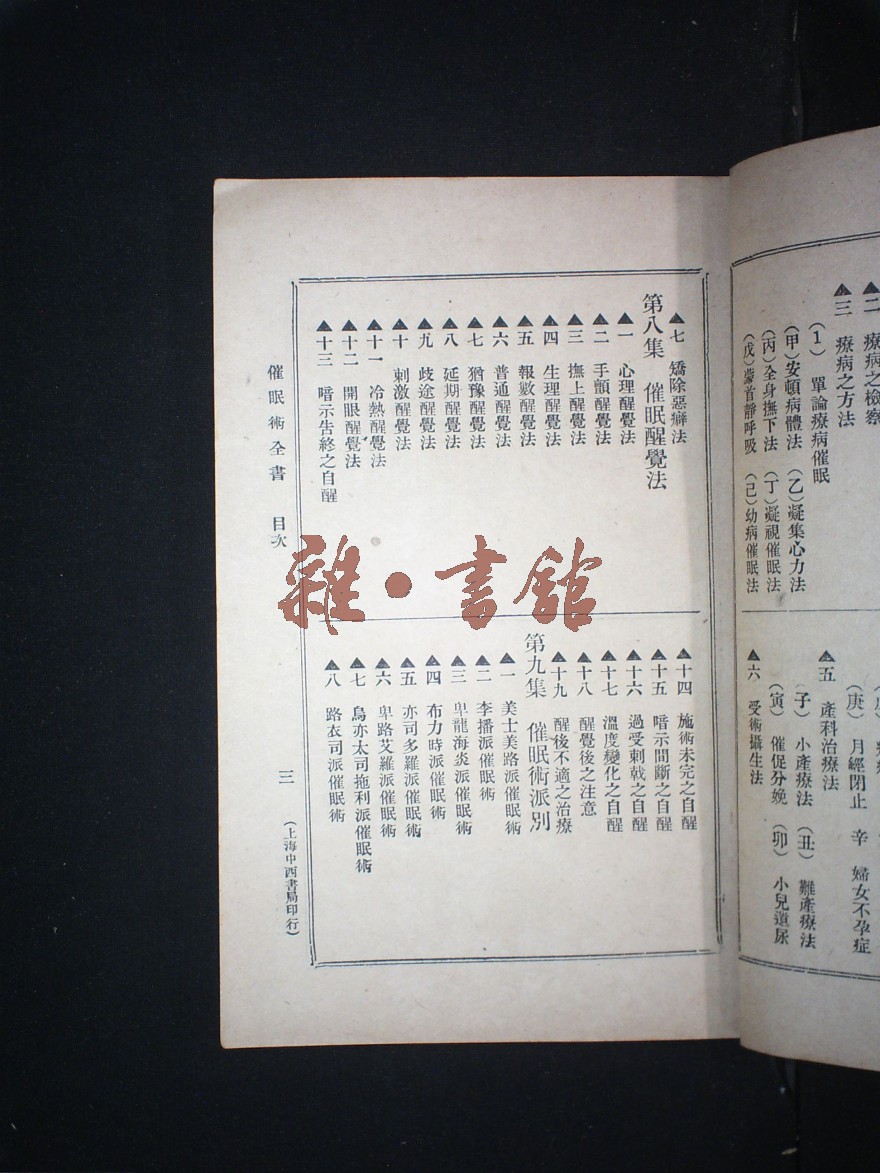 二 療病之檢察
三 療病之方法
(1) 單論療病催眠
(甲)安頓病體法 (乙)凝集心力法
(丙)全身撫下法 (丁)凝視催眠法
(戊)蒙首靜呼吸 (己)幼病催眠法
(庚)月經閉止 辛 婦女不孕症
五 產科治療法
子)小產療法 (丑)難產療法
(寅)催促分娩 (卯)小兒遺尿
六 受術攝生法
▲七 矯除惡癖法
第八集 催眠醒覺法
▲一 心理醒覺法
▲二 手顫醒覺法
▲三 撫上醒覺法
▲四 生理醒覺法
▲五 報數醒覺法
▲六 普通醒覺法
▲七 猶豫醒覺法
▲八 延期醒覺法
▲九 歧途醒覺法
▲十 刺激醒覺法
▲十一 冷熱醒覺法
▲十二 開眼醒覺法
▲十三 暗示告終之自醒
▲十四 施術未完之自醒
▲十五 暗示間斷之自醒
▲十六 過受刺戟之自醒
▲十七 溫度變化之自醒
▲十八 醒覺後之注意
▲十九 醒後不適之治療
第九集 催眠術派別
▲一 美士美路派催眠術
▲二 李播派催眠術
▲三 卑龍海炎派催眠術
▲四 布力時派催眠術
▲五 亦司多羅派催眠術
▲六 卑路艾羅派催眠術
▲七 鳥亦太司拖利派催眠術
▲八 路衣司派催眠術
催眠術全書 目次
三
(上海中西書局印行)
雜·書館